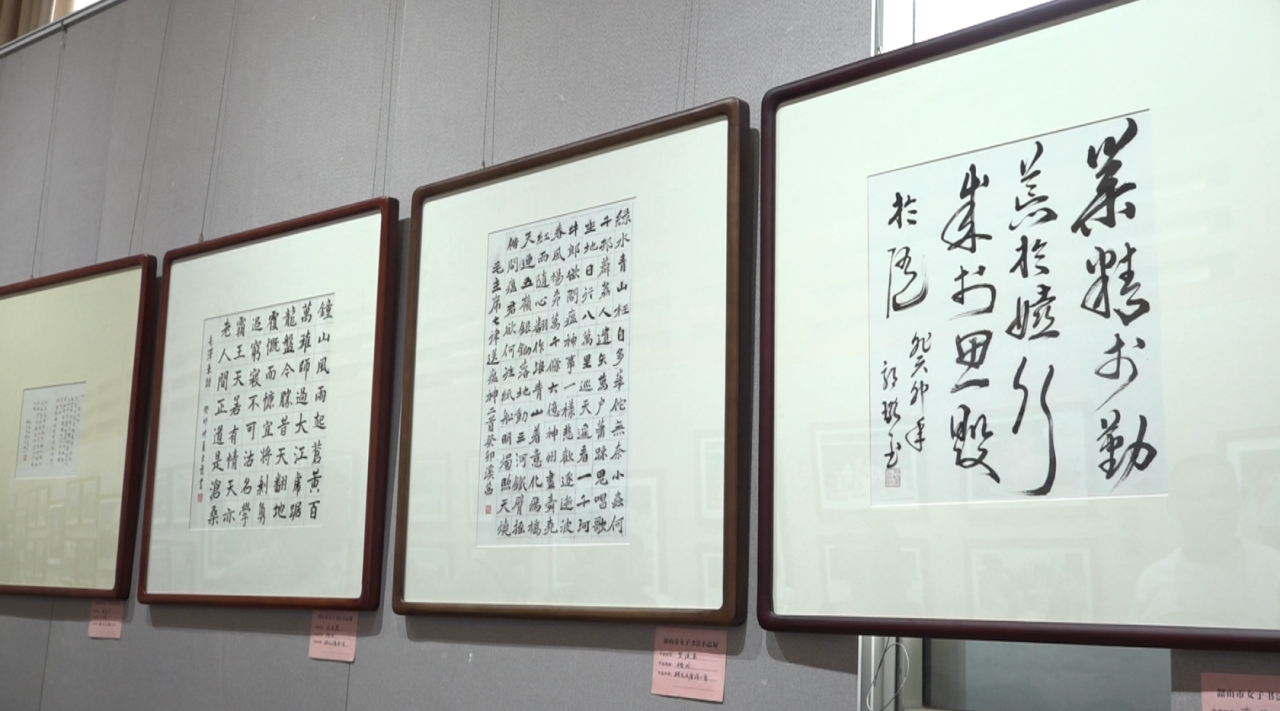 鐘山風雨起蒼黃百
萬雄師過大江虎踞
龍盤今勝昔天翻地
覆慨而慷宜將剩勇
追窮寇不可沽名學
霸王天若有情天亦
老人間正道是滄桑
毛澤東詩
綠水青山枉自多華佗無奈小蟲何
千邨薜荔人遺矢萬户蕭疎鬼唱歌
坐地日行八萬里巡天遥看一千河
牛郎欲問瘟神事一樣悲歡逐逝波
春風楊柳萬千條六億神州盡舜堯
紅雨隨心翻作浪青山着意化為橋
天連五嶺銀鋤落地動三河鐵臂摇
借問瘟君欲何往紙船明燭照天燒
毛主席七律送瘟神二首癸卯
業精於勤
荒於嬉行
成於思毀
於随
癸卯年
韶山市女子书法小品展
韶山市女子书